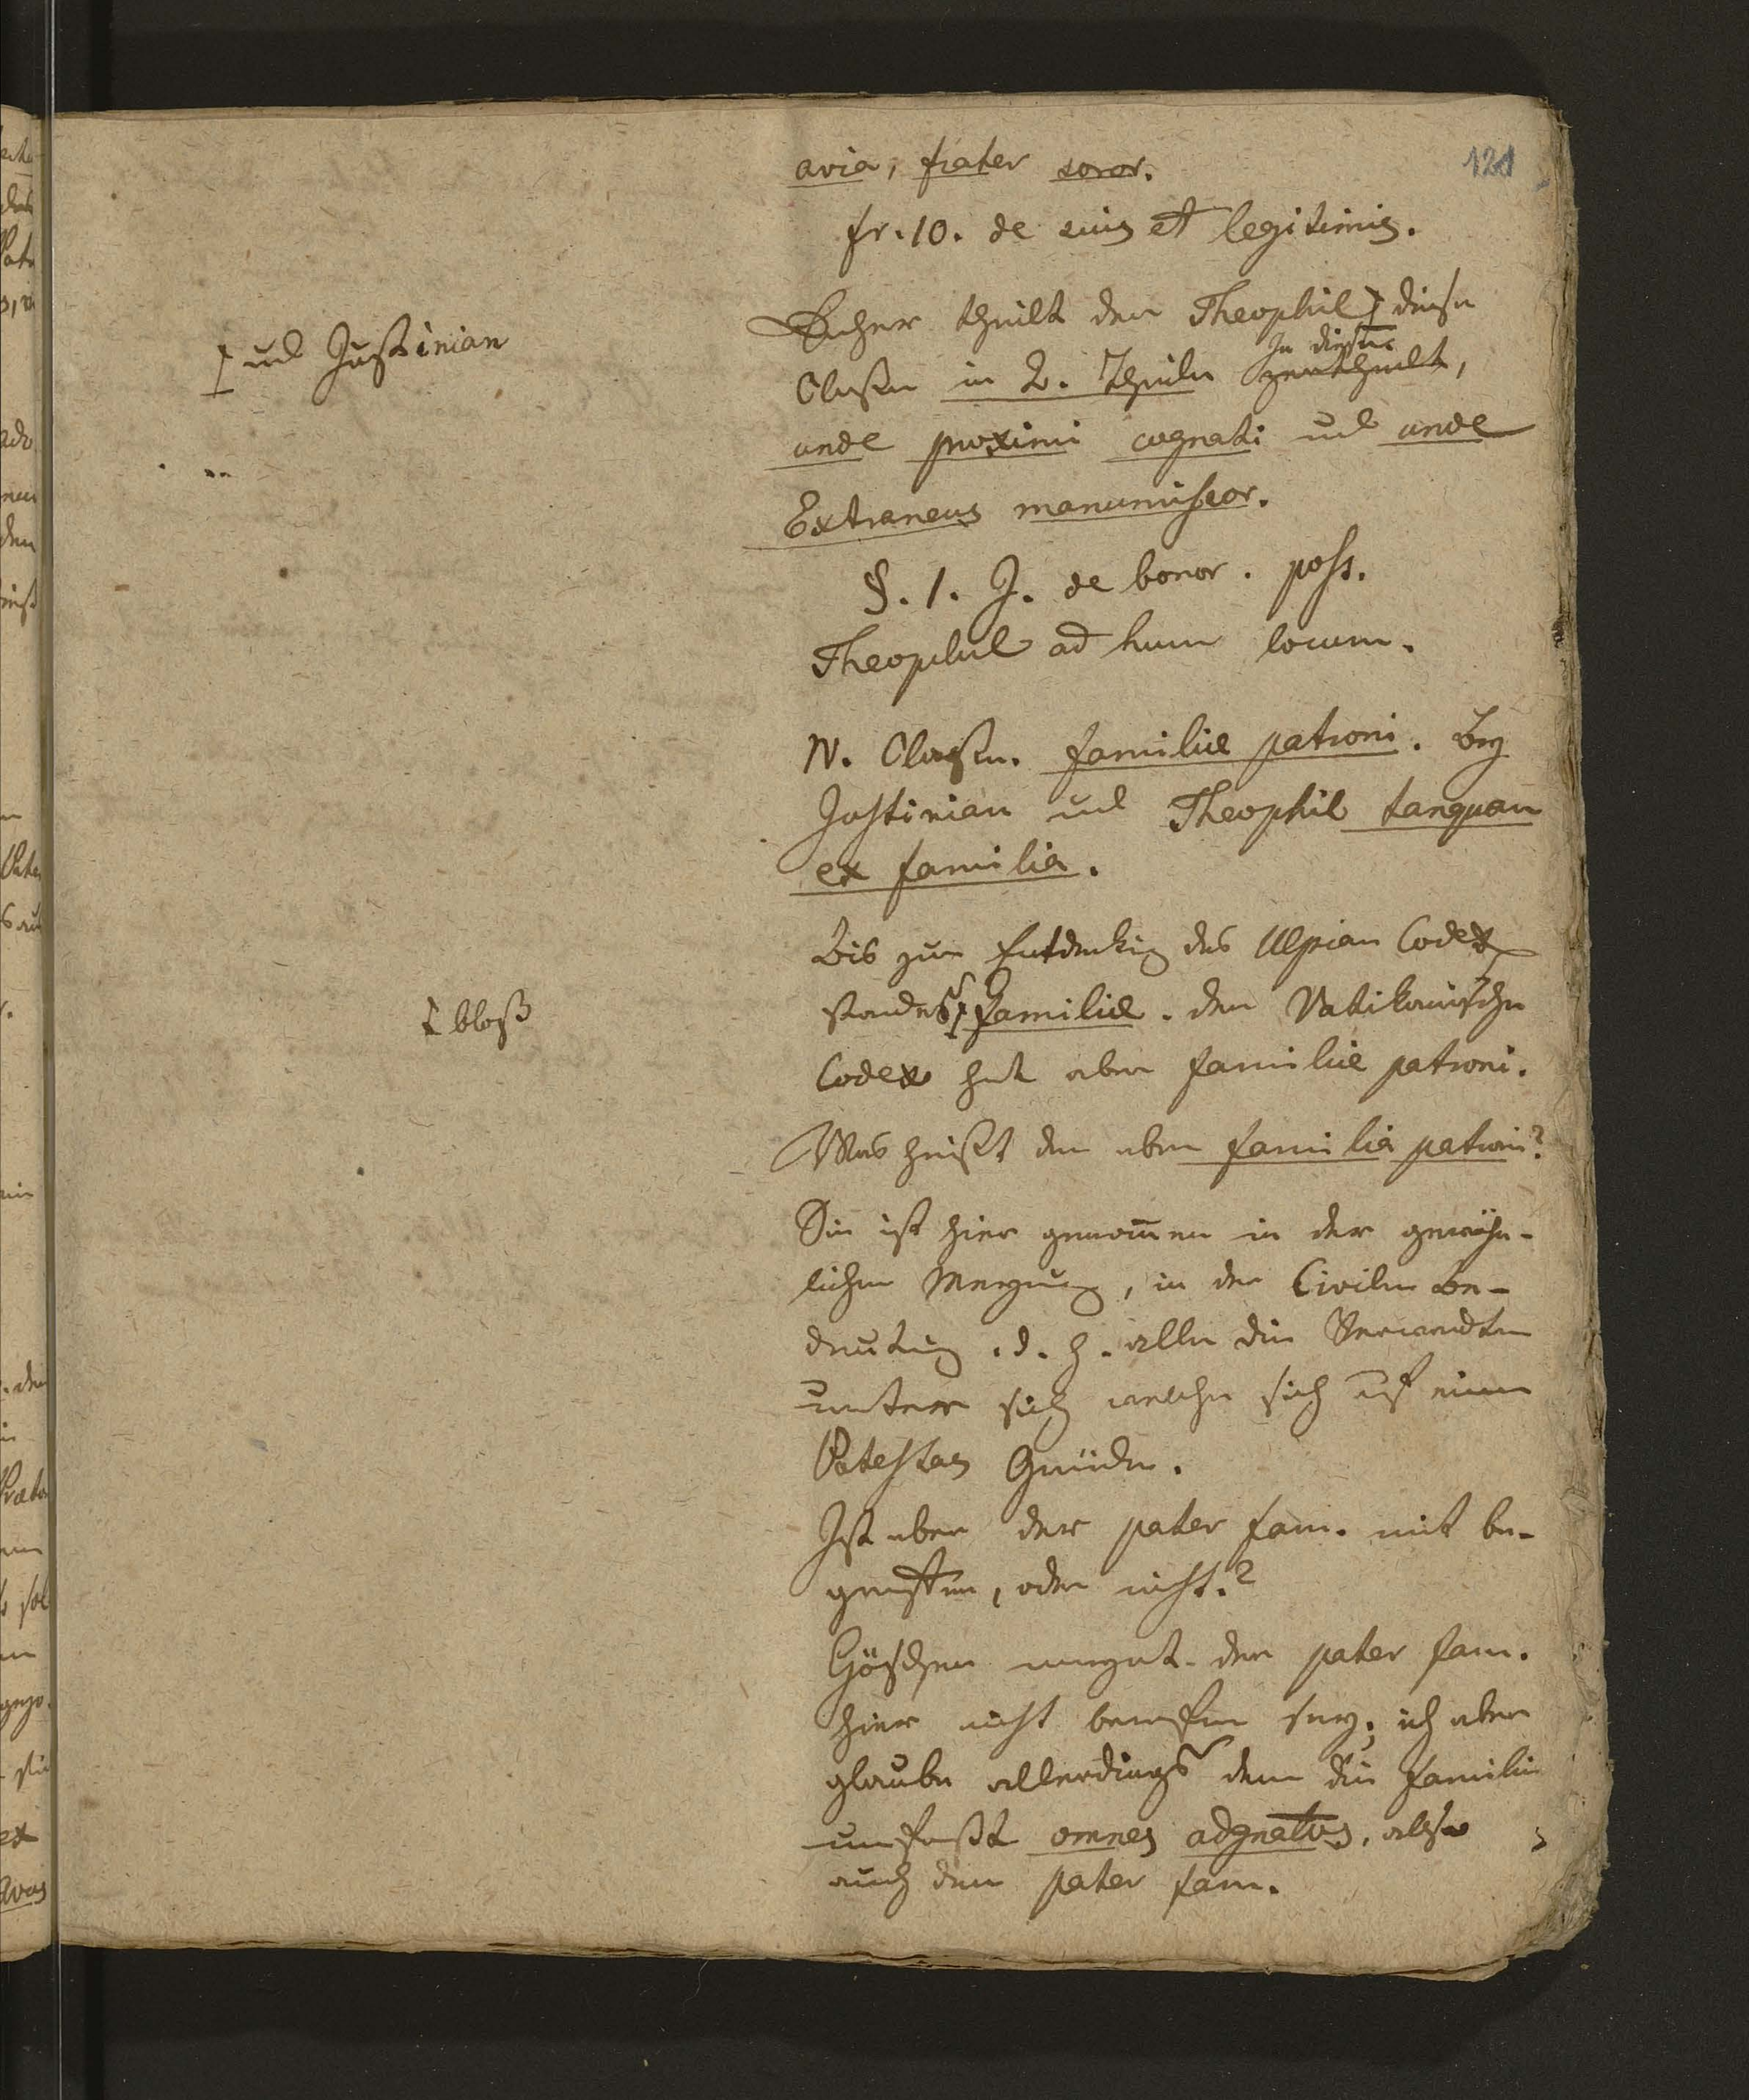 121
avia, frater soror.
fr. 10. de suis et legitimis.
Daher theilt der Theophil diese
und Justinian
Classen in 2. Theile zertheilt,
In diesen
unde proximi cognati und unde
Extraneus manumissor.
§. 1. J. de bonor. poss.
Theophil ad hunc locum.
IV. Classen. familiae patroni. Bey
Justinian und Theophil tanquam
ex familia.
Bis zur Entdeckung des Ulpian Codex
stand es familiae. der Vatikanische
bloß
Codex hat aber familiae patroni.
Was heißt den aber familia patroni?
Sie ist hier genommen in der gewöhn-
lichen Meynung, in der Civilen Be-
deutung. d. h. alle die Verwandten
unter sich welche sich auf eine
Potestas Gründen.
Ist aber der pater fam. mit be-
griffen, oder nicht.?
Göschen meynt der pater fam.
hier nicht berufen sey; ich aber
glaube allerdings denn die familie
umfaßt omnes adgnatos, also
auch den pater fam.